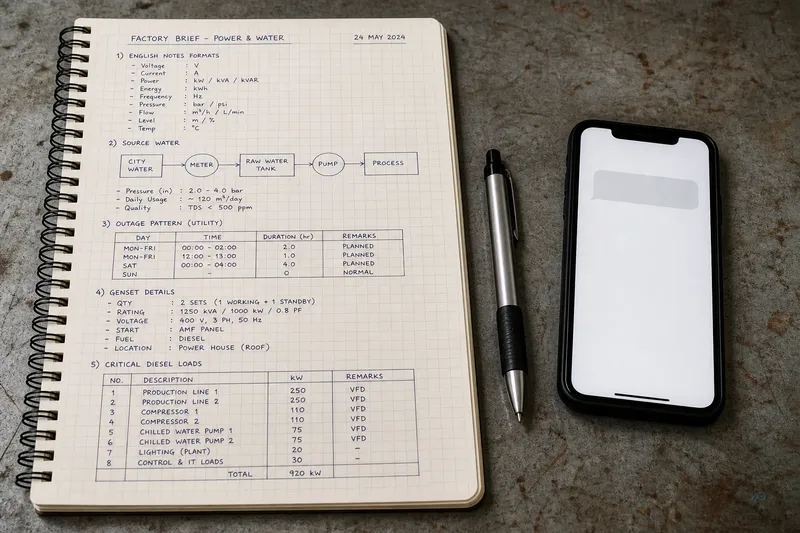 FACTORY BRIEF – POWER & WATER 24 MAY 2024
1) ENGLISH NOTES FORMATS
– Voltage : V
– Current : A
– Power : kW / kVA / kVAR
– Energy : kWh
– Frequency : Hz
– Pressure : bar / psi
– Flow : m³/h / L/min
– Level : m / %
– Temp : °C
2) SOURCE WATER
CITY WATER METER RAW WATER TANK PUMP PROCESS
– Pressure (in) : 2.0 – 4.0 bar
– Daily Usage : ~ 120 m³/day
– Quality : TDS < 500 ppm
3) OUTAGE PATTERN (UTILITY)
DAY TIME DURATION (hr) REMARKS
MON-FRI 00:00 – 02:00 2.0 PLANNED
MON-FRI 12:00 – 13:00 1.0 PLANNED
SAT 00:00 – 04:00 4.0 PLANNED
SUN – 0 NORMAL
4) GENSET DETAILS
– QTY : 2 SETS (1 WORKING + 1 STANDBY)
– RATING : 1250 kVA / 1000 kW / 0.8 PF
– VOLTAGE : 400 V, 3 PH, 50 Hz
– START : AMF PANEL
– FUEL : DIESEL
– LOCATION : POWER HOUSE (ROOF)
5) CRITICAL DIESEL LOADS
NO. DESCRIPTION kW REMARKS
1 PRODUCTION LINE 1 250 VFD
2 PRODUCTION LINE 2 250 VFD
3 COMPRESSOR 1 110 VFD
4 COMPRESSOR 2 110 VFD
5 CHILLED WATER PUMP 1 75 VFD
6 CHILLED WATER PUMP 2 75 VFD
7 LIGHTING (PLANT) 20 –
8 CONTROL & IT LOADS 30 –
TOTAL 920 kW